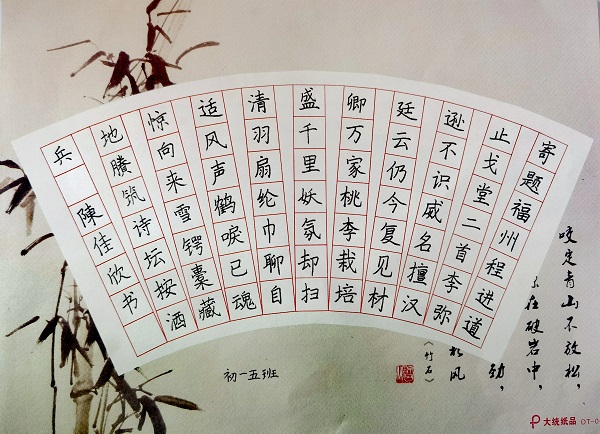 寄题福州程进道
止戈堂二首李弥
逊不识威名擅汉
廷云仍今复见材
卿万家桃李栽培
盛千里妖氛却扫
清羽扇纶巾聊自
适风声鹤唳已魂
惊向来雪锷橐藏
地賸筑诗坛按酒
兵 陳佳欣书
初一五班
咬定青山不放松，
在破岩中，
劲，
风
《竹石》
大统纸品 DT-0